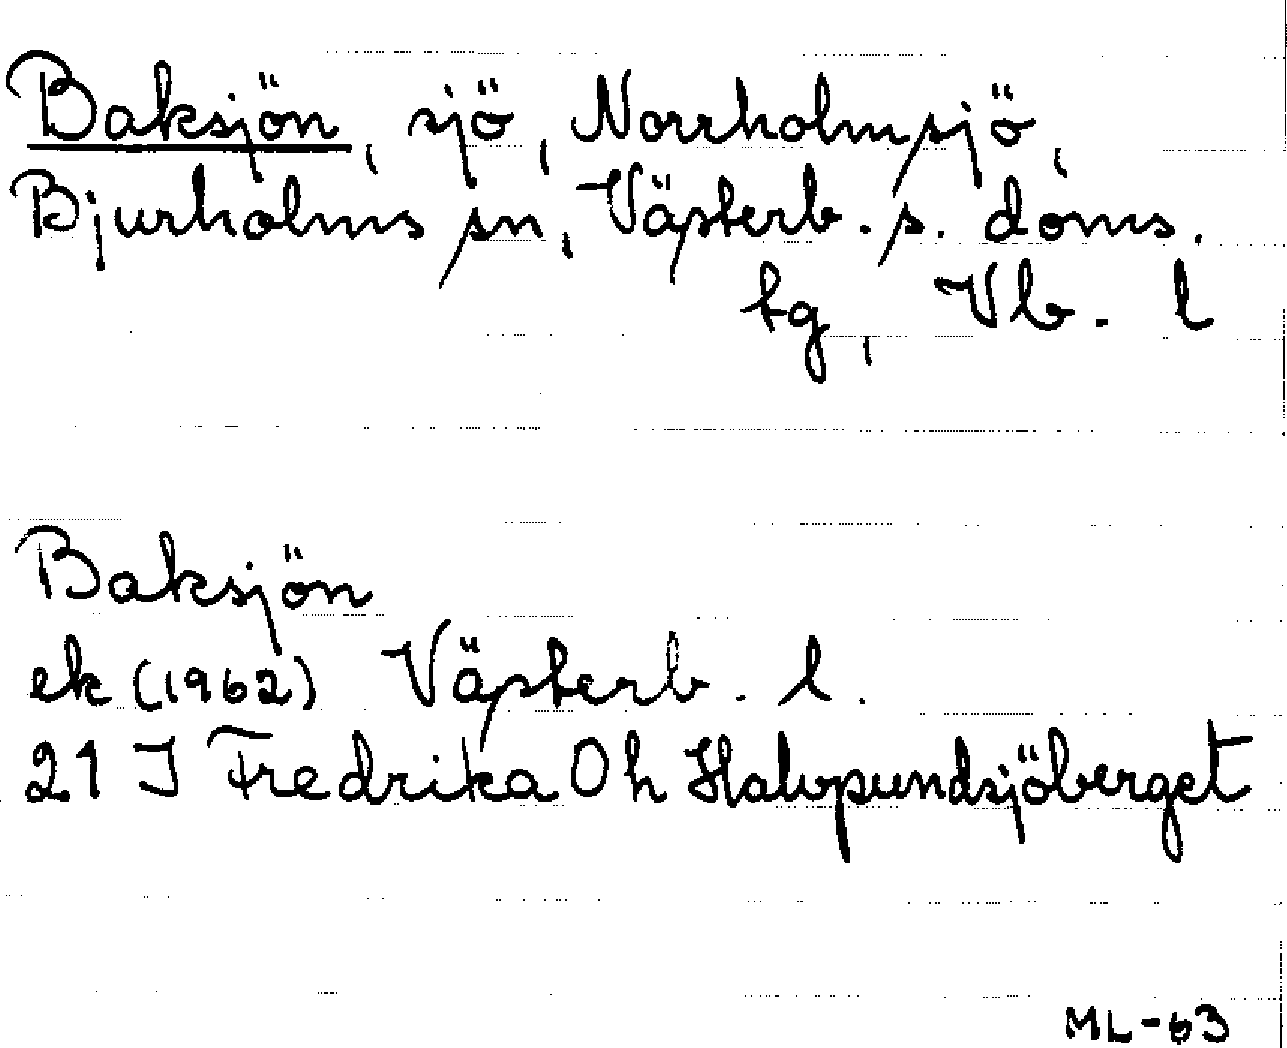 Baksjön, sjö, Norrholmsjö,
Bjurholms sn, Västerb. s. doms.
tg, Vb. l
Baksjön
ek (1962) Västerb. l.
21 J Fredrika Oh Halvpundsjöberget
ML-63